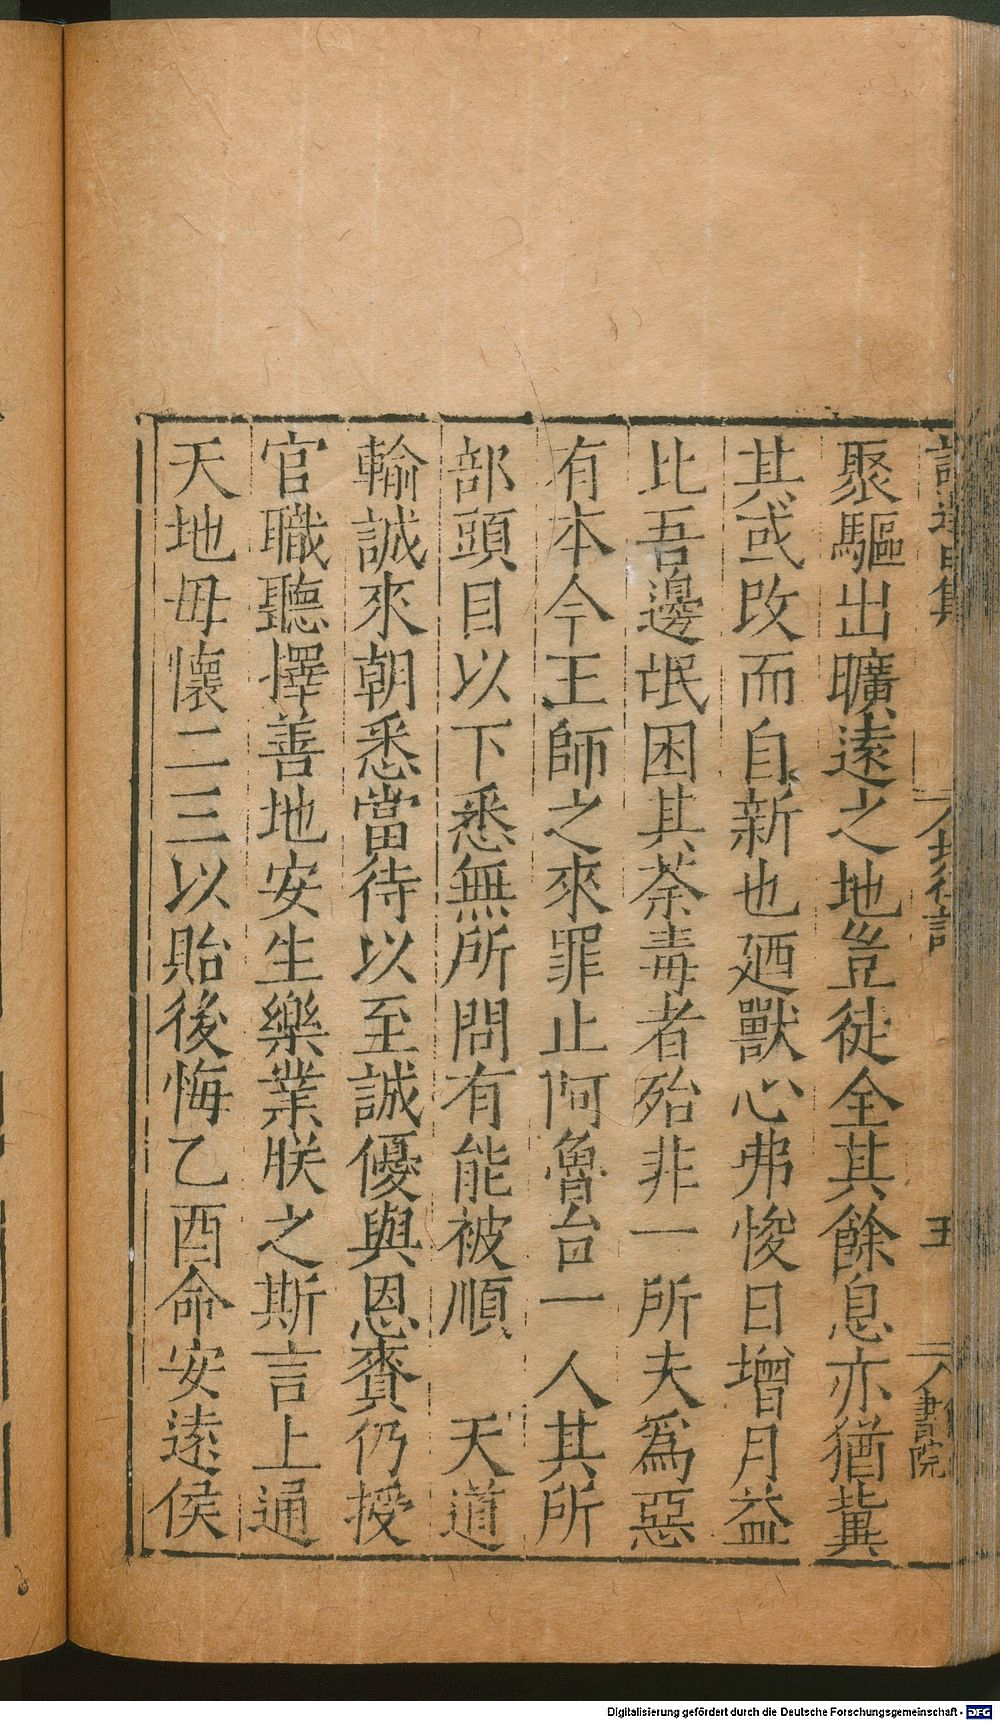 聚驅出曠遠之地豈徒全其餘息亦猶冀
其或改而自新也廼獸心弗悛日增月益
比吾邊氓困其荼毒者殆非一所夫爲惡
有本今王師之來罪止阿魯台一人其所
部頭目以下悉無所問有能被順　天道
輸誠來朝悉當待以至誠優與恩賚仍授
官職聽擇善地安生樂業朕之斯言上通
天地毋懷二三以貽後悔乙酉命安遠侯
五
書院
Digitalisierung gefördert durch die Deutsche Forschungsgemeinschaft - DFG